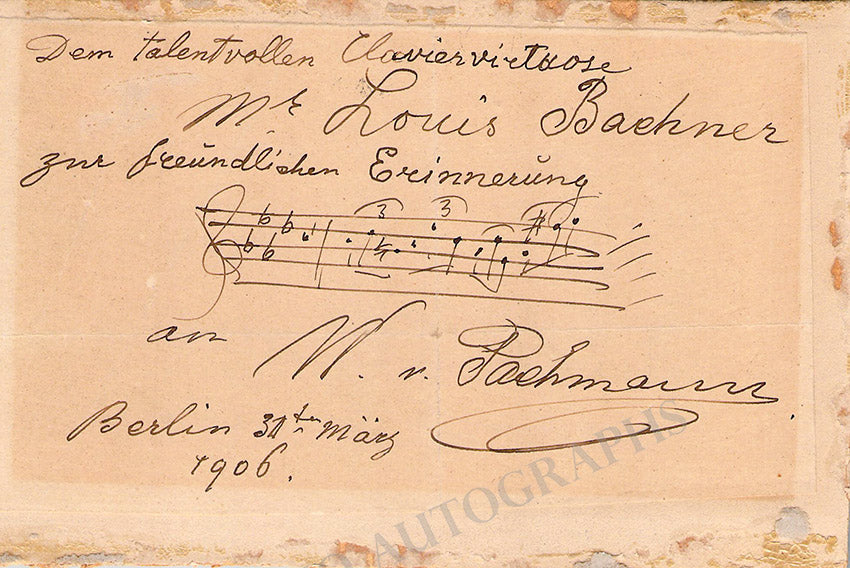 Dem talentvollen Claviervirtuose
Mr Louis Bachner
zur freundlichen Erinnerung
3 3
an W. v. Pachmann.
Berlin 31ten März
1906.
AUTOGRAPHS